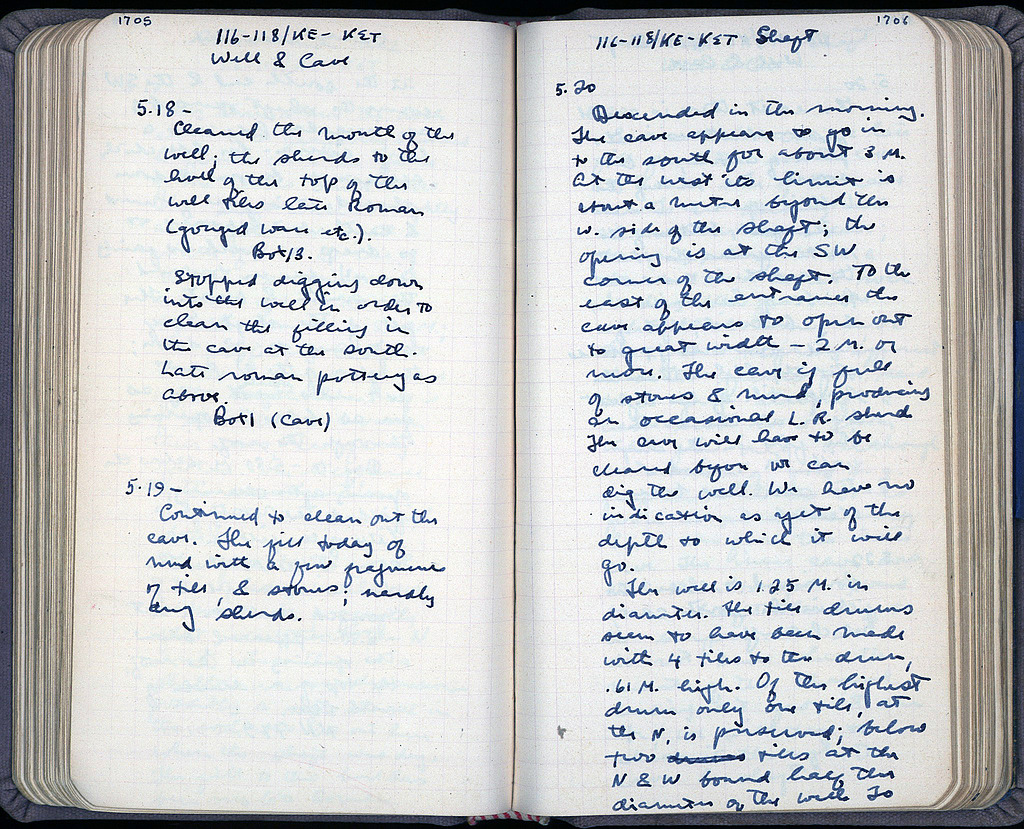 1705
116-118/KE-KET
Well & Cave
5.18-
Cleaned the mouth of the
well; the sherds to the
level of the top of the
well tiles late Roman
(gouged ware etc.).
Bot 13.
Stopped digging down
into the well in order to
clean the filling in
the cave at the south.
Late roman pottery as
above.
Bot 1 (Cave)
5.19-
Continued to clean out the
cave. The fill today of
mud with a few fragments
of tiles, & stones; hardly
any sherds.
1706
116-118/KE-KET Shaft
5.20
Descended in the morning.
The cave appears to go in
to the south for about 3 M.
At the west its limit is
about a metre beyond the
w. side of the shaft; the
opening is at the SW
corner of the shaft. To the
east of the entrance the
cave appears to open out
to great width - 2 M. or
more. The cave is full
of stones & mud, producing
an occasional L.R. sherd
The cave will have to be
cleared before we can
dig the well. We have no
indication as yet of the
depth to which it will
go.
The well is 1.25 M. in
diameter. The tile drums
seem to have been made
with 4 tiles to the drum,
.61 M. high. Of the highest
drum only one tile, at
the N, is preserved; below
two drums tiles at the
N & W bound half the
diameter of the well. To